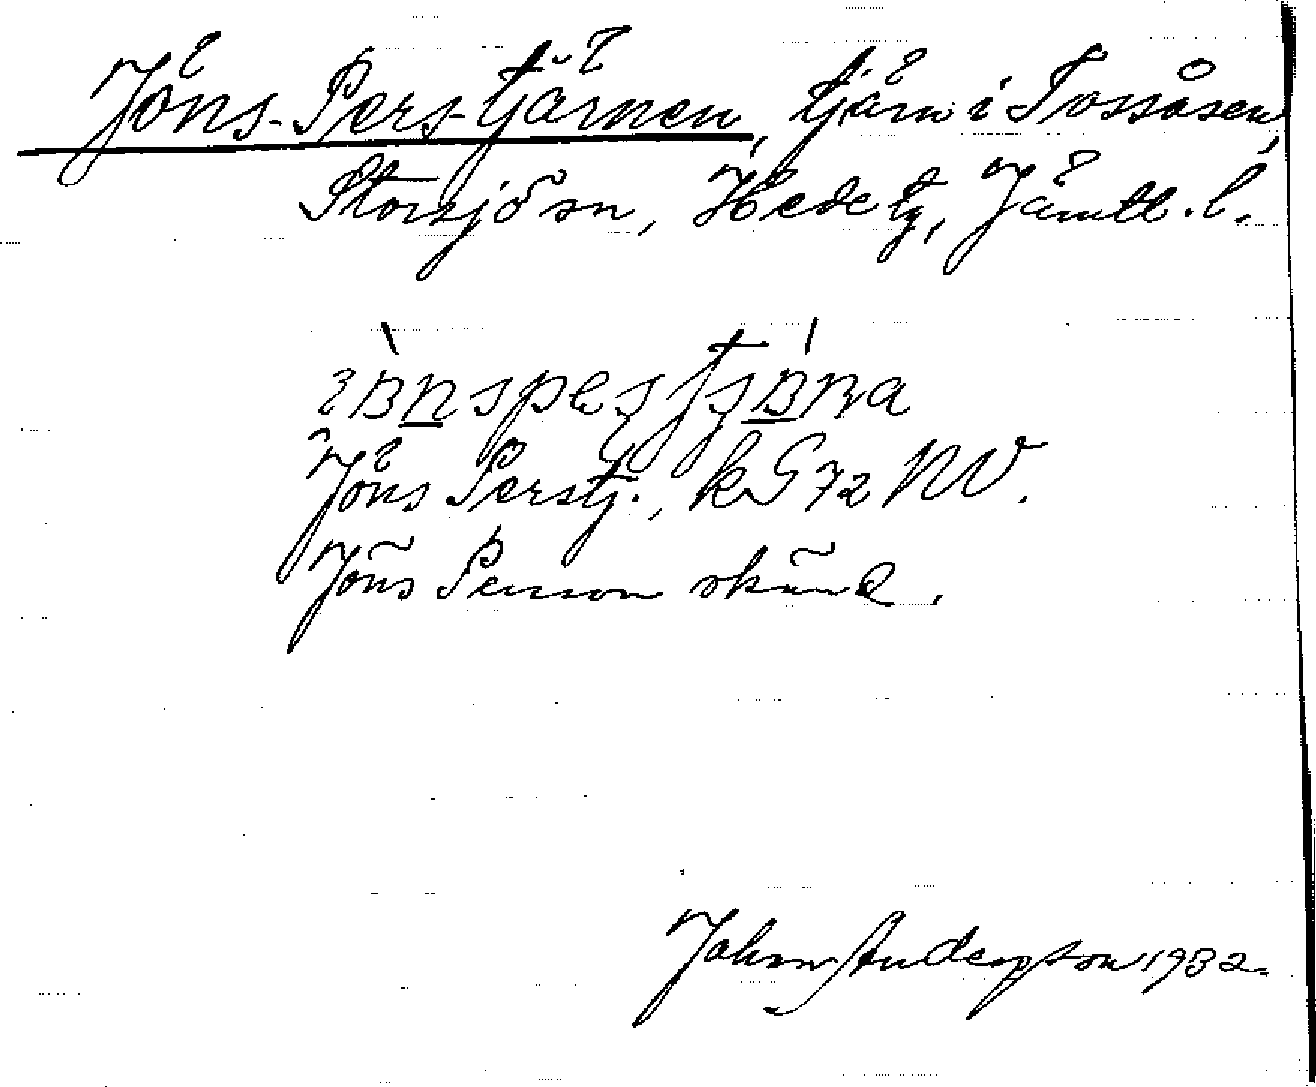 Jöns-Pers-tjärnen, tjärn i Tossåsen,
Storsjö sn, Hede tg, Jämtl. l.
Jöns Perstj., kG 72 NV.
Jöns Persson okänd.
Johan Andersson 1932.